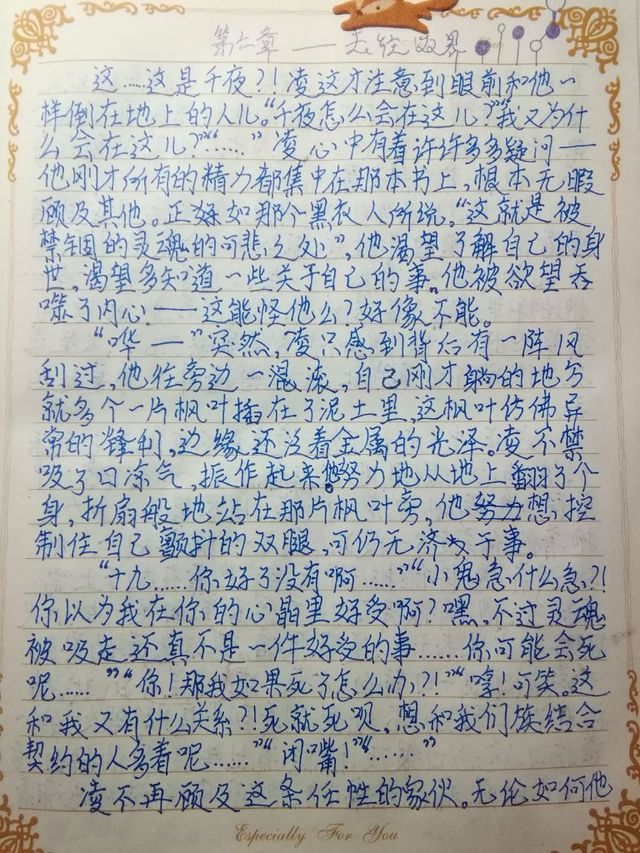 第六章 —— 失控边界
这……这是千夜？！凌这才注意到眼前和他一
样倒在地上的人儿。“千夜怎么会在这儿？”“我又为什
么会在这儿？”“……”凌心中有着许许多多疑问——
他刚才所有的精力都集中在那本书上，根本无暇
顾及其他。正好如那个黑衣人所说，“这就是被
禁锢的灵魂的可悲之处”，他渴望了解自己的身
世，渴望多知道一些关于自己的事。他被欲望吞
噬了内心——这能怪他么？好像不能。
“哗—”突然，凌只感到背后有一阵风
刮过，他往旁边一混滚，自己刚才躺的地方
就多个一片枫叶插在了泥土里，这枫叶仿佛异
常的锋利，边缘还泛着金属的光泽。凌不禁
吸了口凉气，振作起来，努力地从地上翻了个
身，折扇般地站在那片枫叶旁，他努力想控
制住自己颤抖的双腿，可仍无济于事。
“十九……你好了没有啊……”“小鬼急什么急？！
你以为我在你的心晶里好受啊？嘿，不过灵魂
被吸走还真不是一件好受的事……你可能会死
呢……”“你！那我如果死了怎么办？！”“嘻！可笑。这
和我又有什么关系？！死就死呗，想和我们族结合
契约的人多着呢……”“闭嘴！”“……”
凌不再顾及这条任性的家伙。无论如何他
Especially For You